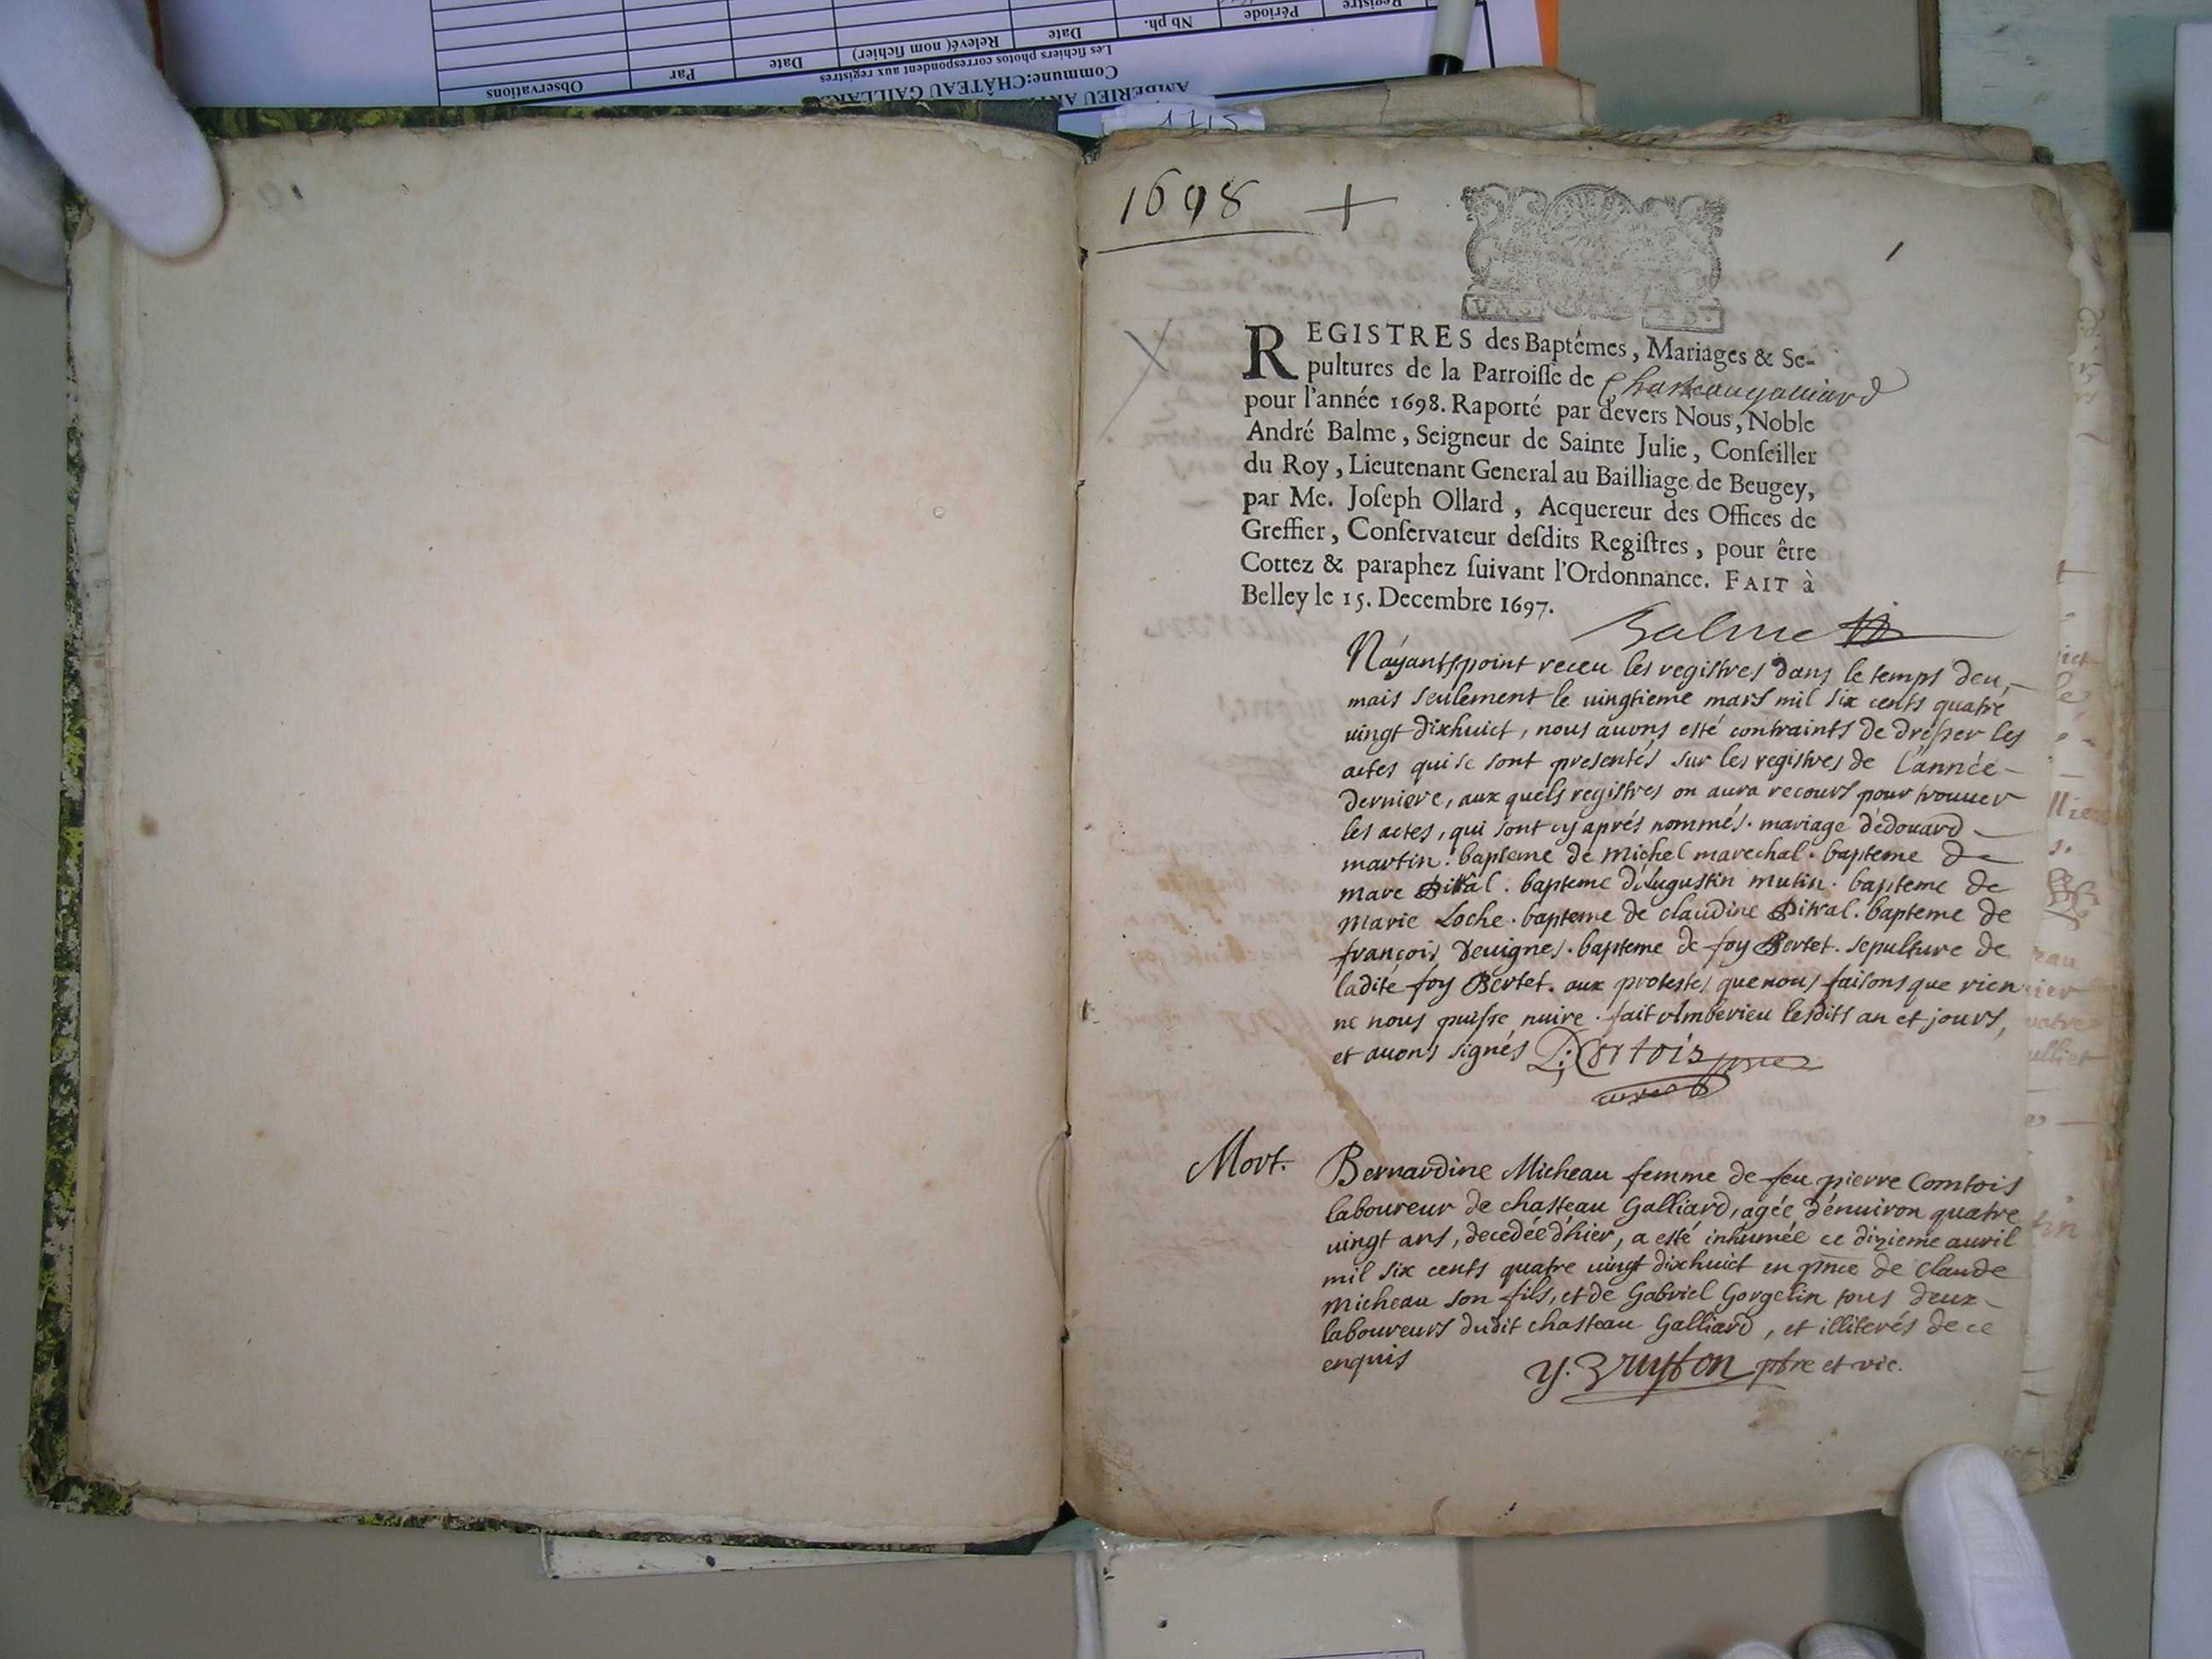 Observations
Par
Date
Relevé (nom fichier)
Date
Nb ph.
Période
Registre
Les fichiers photos correspondent aux registres
Commune: CHÂTEAU GAILLARD
1715
1698 +
1
REGISTRES des Baptêmes, Mariages & Se-
pultures de la Parroisse de Chasteaugalliard
pour l'année 1698. Raporté par devers Nous, Noble
André Balme, Seigneur de Sainte Julie, Conseiller
du Roy, Lieutenant General au Bailliage de Beugey,
par Me. Joseph Ollard, Acquereur des Offices de
Greffier, Conservateur desdits Registres, pour être
Cottez & paraphez suivant l'Ordonnance. FAIT à
Belley le 15. Decembre 1697.
Balme
N'ayants point receu les registres dans le temps deu,
mais seulement le uingtieme mars mil six cents quatre
uingt dixhuict, nous auons esté contraints de dresser les
actes qui se sont presentés sur les registres de l'année
derniere, aux quels registres on aura recours pour trouuer
les actes, qui sont cy aprés nommés. mariage d'édouard
martin. bapteme de Michel marechal. bapteme de
marc Pitral. bapteme d'Augustin mutin. bapteme de
Marie Loche. bapteme de claudine Pitral. bapteme de
françois Deuignes. bapteme de foy Bertet. sepulture de
ladite foy Bertet. aux protestes que nous faisons que rien
ne nous puisse nuire. fait Amberieu lesdits an et jours,
et auons signés
curé
Mort.
Bernardine Micheau femme de feu pierre Comtois
laboureur de chasteau Galliard, agée d'énuiron quatre
uingt ans, decedée d'hier, a esté inhumée ce dizieme auril
mil six cents quatre uingt dixhuict en pnce de Claude
Micheau son fils, et de Gabriel Gorgelin tous deux
laboureurs dudit chasteau Galliard, et illiterés de ce
enquis
ptre et vic.